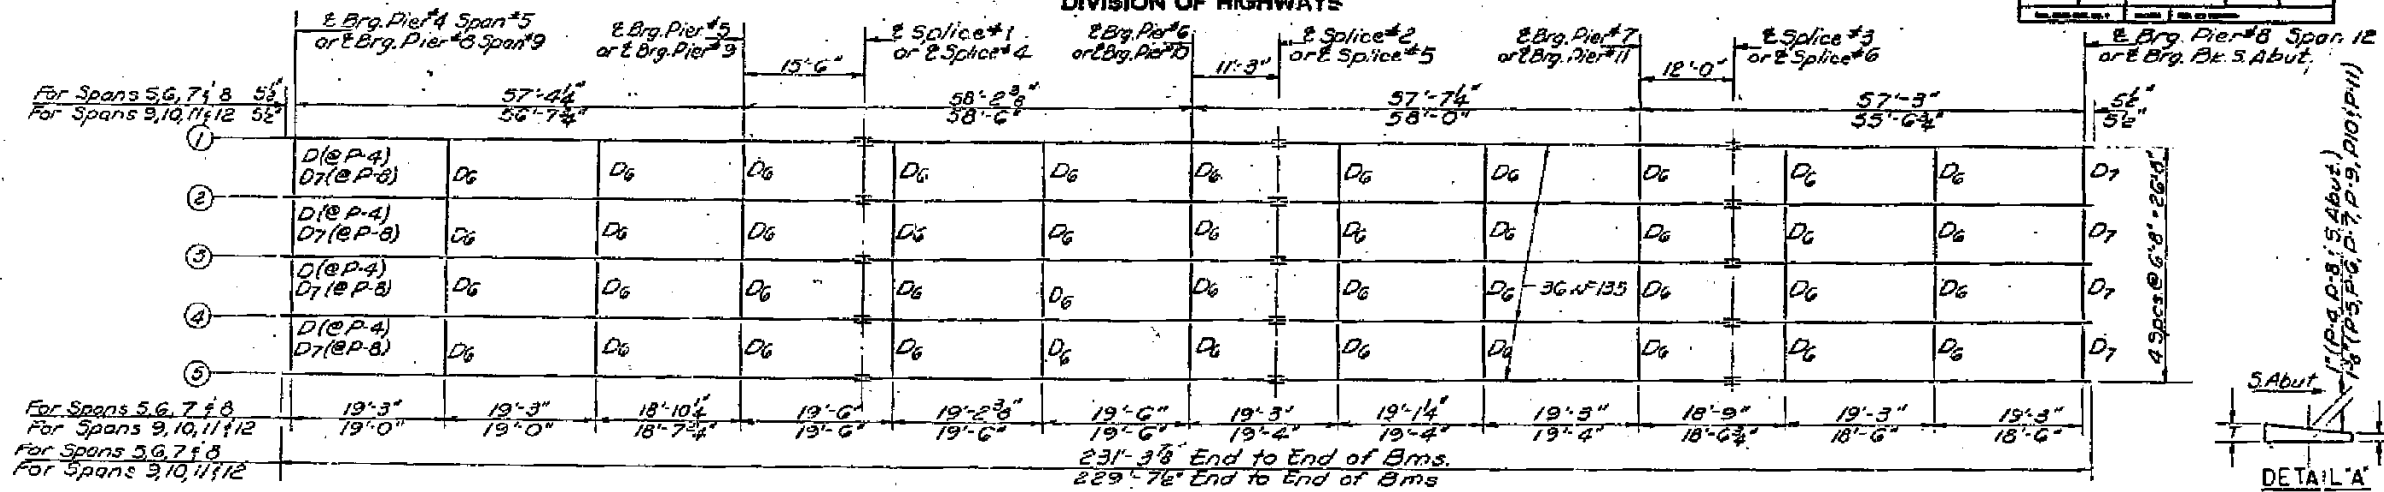 DIVISION OF HIGHWAYS
℄ Brg. Pier #4 Span #5
or ℄ Brg. Pier #8 Span #9
℄ Brg. Pier #5
or ℄ Brg. Pier #9
℄ Splice #1
or ℄ Splice #4
℄ Brg. Pier #6
or ℄ Brg. Pier #10
℄ Splice #2
or ℄ Splice #5
℄ Brg. Pier #7
or ℄ Brg. Pier #11
℄ Splice #3
or ℄ Splice #6
℄ Brg. Pier #8 Span 12
or ℄ Brg. Bk. S. Abut.
15'-6" 11'-3" 12'-0"
For Spans 5,6,7 & 8 5½" 57'-4¼" 58'-2⅜" 57'-7¼" 57'-3" 5½"
For Spans 9,10,11 & 12 5½" 56'-7¼" 58'-6" 58'-0" 55'-6¾" 5½"
1
D(@ P-4)
D7(@ P-8) D6 D6 D6 D6 D6 D6 D6 D6 D6 D6 D6 D7
2
D(@ P-4)
D7(@ P-8) D6 D6 D6 D6 D6 D6 D6 D6 D6 D6 D6 D7
3
D(@ P-4)
D7(@ P-8) D6 D6 D6 D6 D6 D6 D6 D6 36 WF 135 D6 D6 D6 D7
4
D(@ P-4)
D7(@ P-8) D6 D6 D6 D6 D6 D6 D6 D6 D6 D6 D6 D7
5
4 Spcs @ 6'-8" = 26'-8"
1" (P-4, P-8 & S. Abut.)
1⅜" (P-5, P-6, P-7, P-9, P-10 & P-11)
For Spans 5,6,7 & 8 19'-3" 19'-3" 18'-10¼" 19'-6" 19'-2⅜" 19'-6" 19'-3" 19'-1¼" 19'-3" 18'-9" 19'-3" 19'-3"
For Spans 9,10,11 & 12 19'-0" 19'-0" 18'-7¼" 19'-6" 19'-6" 19'-6" 19'-4" 19'-4" 19'-4" 18'-6¾" 18'-6" 18'-6"
For Spans 5,6,7 & 8 231'-3⅞" End to End of Bms.
For Spans 9,10,11 & 12 229'-7½" End to End of Bms
S. Abut.
T
DETAIL "A"